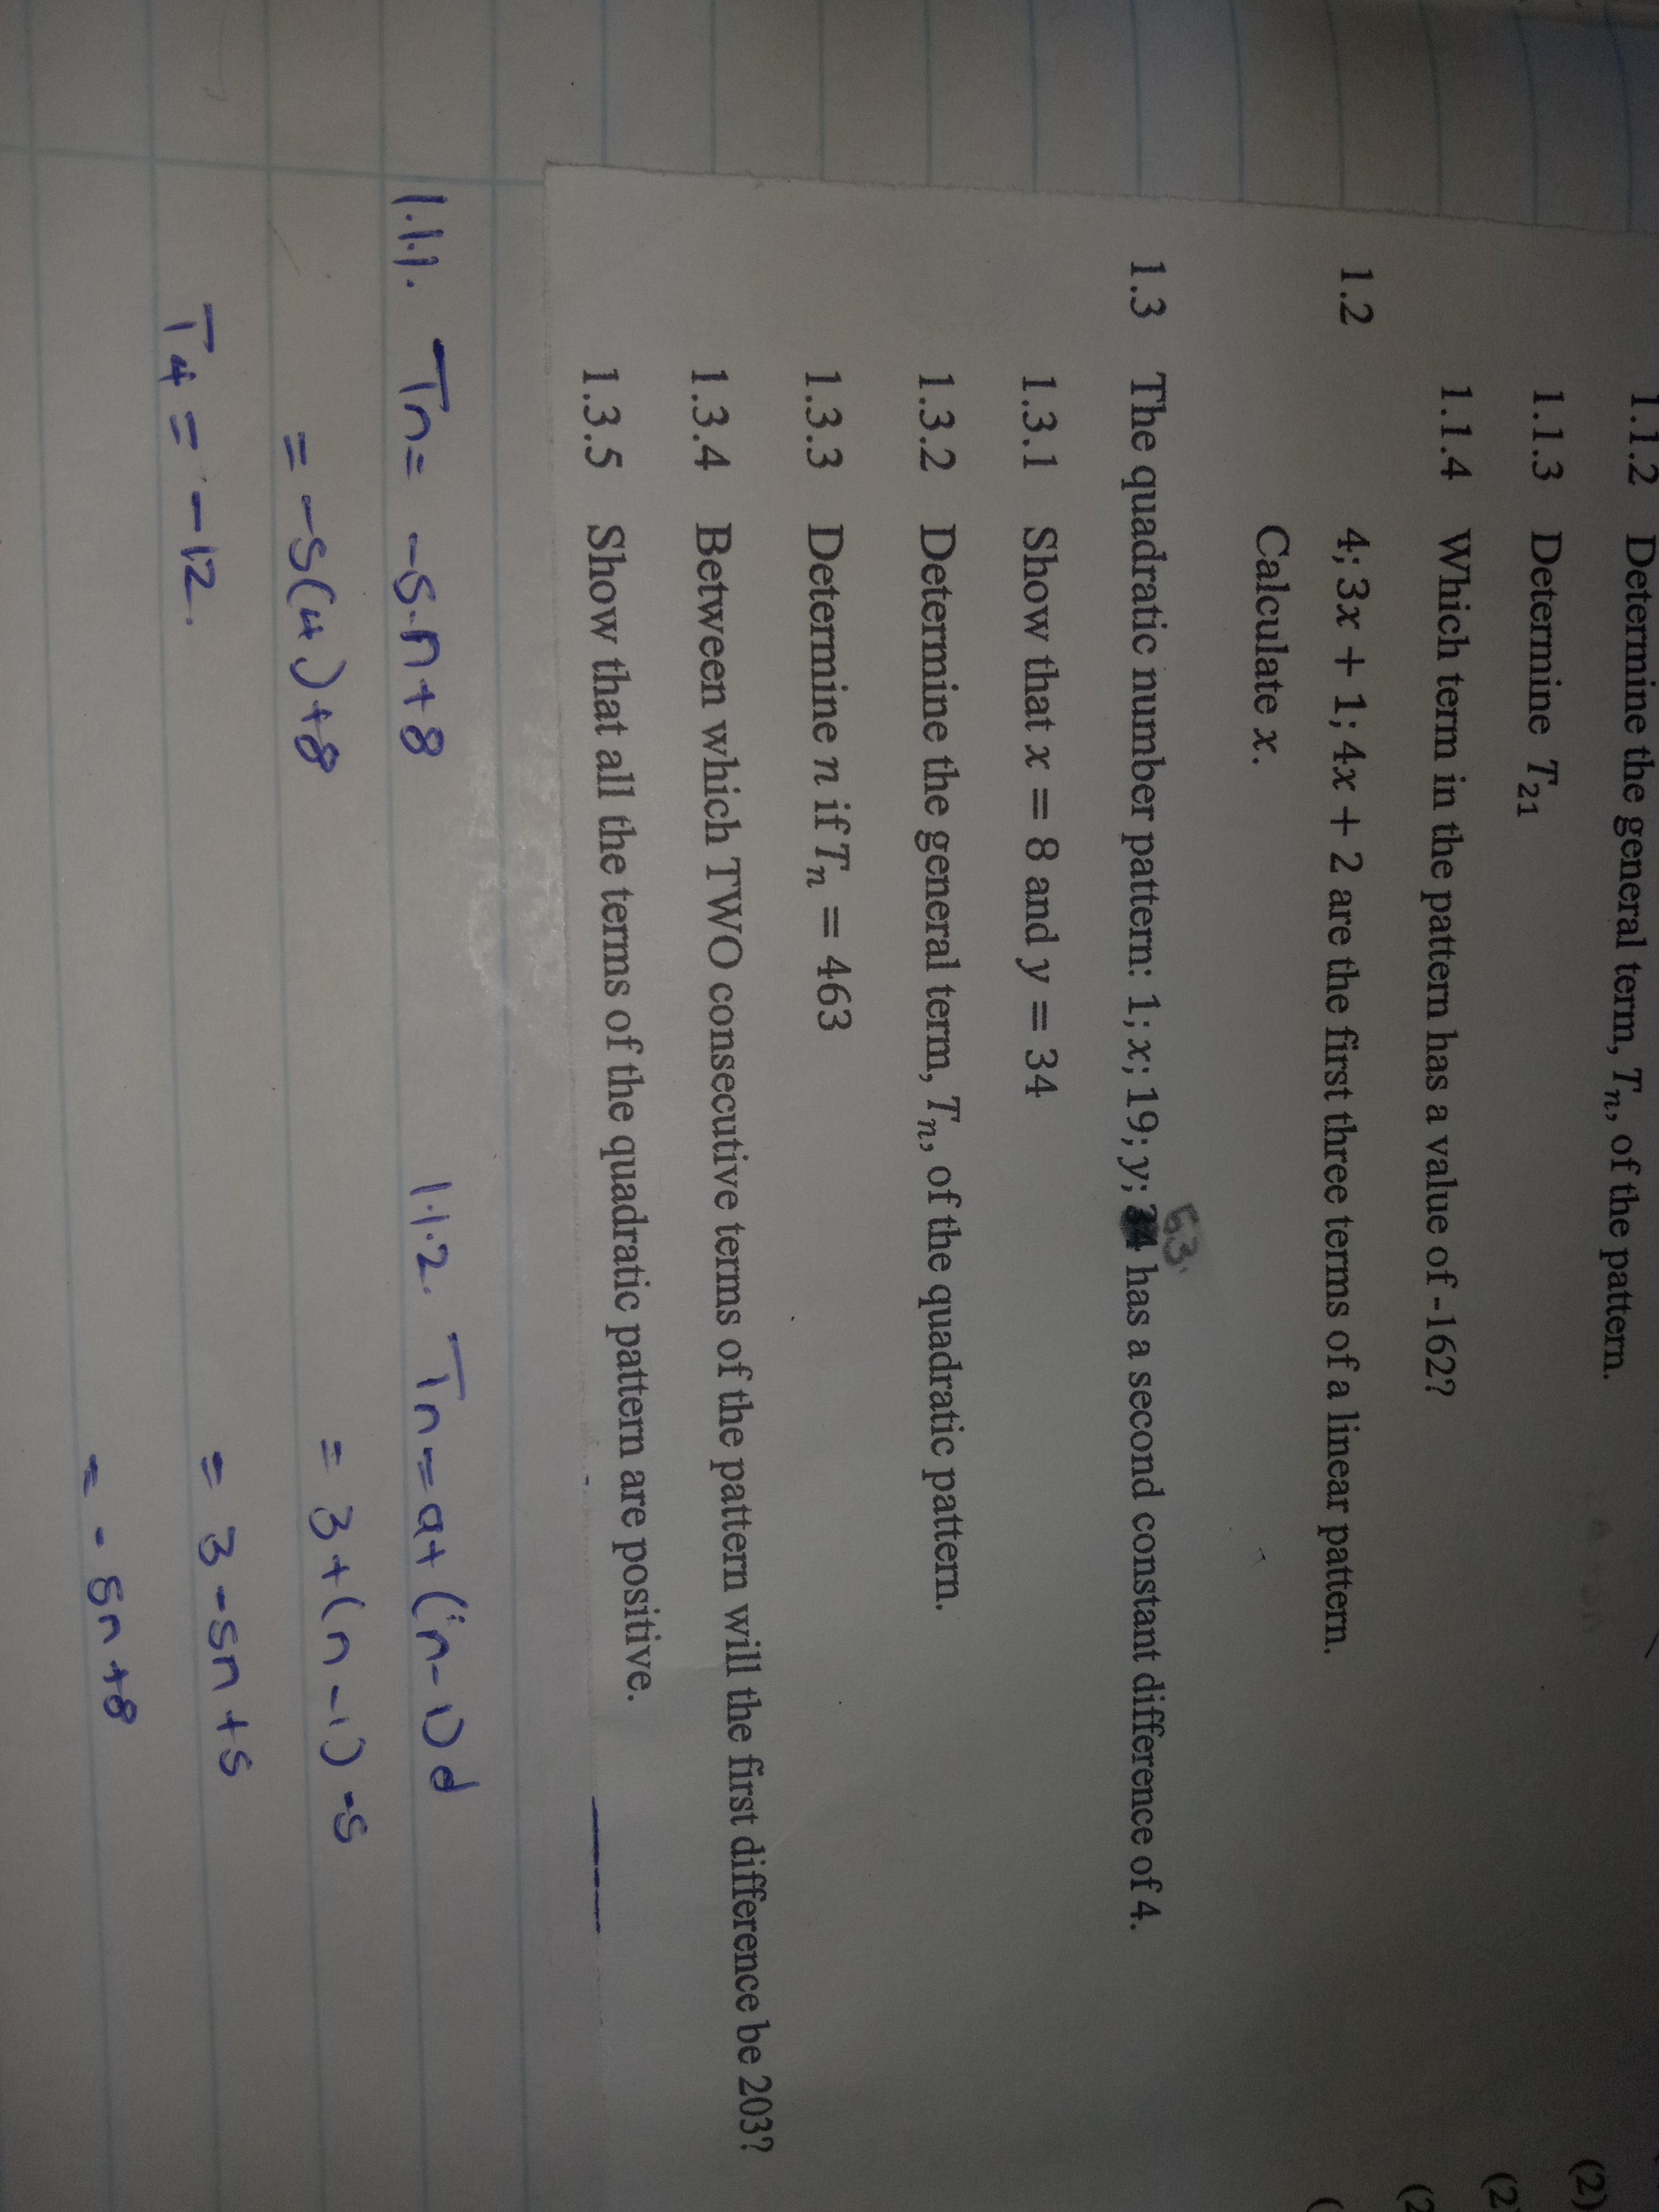 1.1.2 Determine the general term, Tₙ, of the pattern.
(2)
1.1.3 Determine T₂₁
(2
1.1.4 Which term in the pattern has a value of -162?
(2
1.2 4; 3x + 1; 4x + 2 are the first three terms of a linear pattern.
(
Calculate x.
63.
1.3 The quadratic number pattern: 1; x; 19; y; has a second constant difference of 4.
1.3.1 Show that x = 8 and y = 34
1.3.2 Determine the general term, Tₙ, of the quadratic pattern.
1.3.3 Determine n if Tₙ = 463
1.3.4 Between which TWO consecutive terms of the pattern will the first difference be 203?
1.3.5 Show that all the terms of the quadratic pattern are positive.
1.1.1. Tn = -5.n+8
= -5(4)+8
T4 = -12.
1.1.2. Tn = a+(n-1)d
= 3+(n-1)-5
= 3-5n+5
= -5n+8